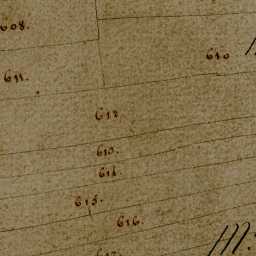 608.
610
611.
612
613.
614
615.
616.
M.